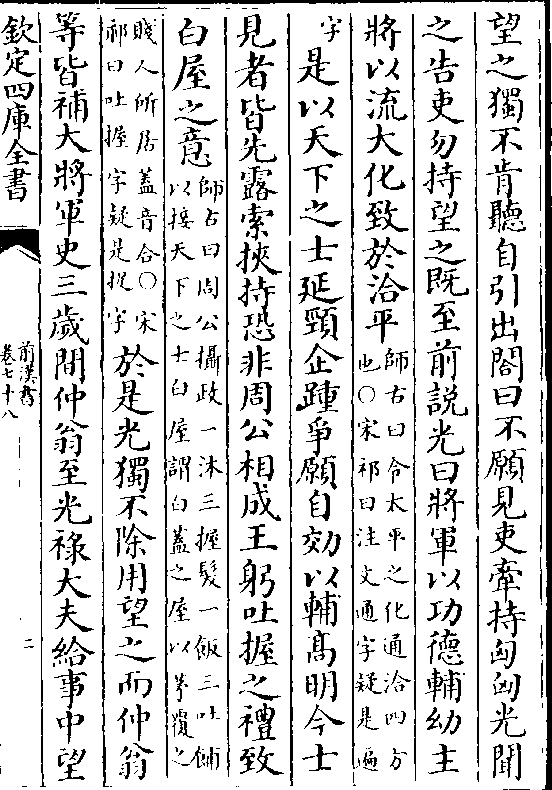 望之獨不肯聽自引出閤曰不願見吏牽持匈匈光聞
之告吏勿持望之既至前説光曰將軍以功德輔幼主
將以流大化致於洽平師古曰令太平之化通洽四方也○宋祁曰注文通字疑是遍
字是以天下之士延頸企踵爭願自効以輔髙明今士
見者皆先露索挾持恐非周公相成王躬吐握之禮致
白屋之意師古曰周公攝政一沐三握髮一飯三吐餔以接天下之士白屋謂白蓋之屋以茅覆之
賤人所居蓋音合○宋祁曰吐握字疑是捉字於是光獨不除用望之而仲翁
等皆補大將軍史三歲間仲翁至光祿大夫給事中望
欽定四庫全書
前漢書
卷七十八
二